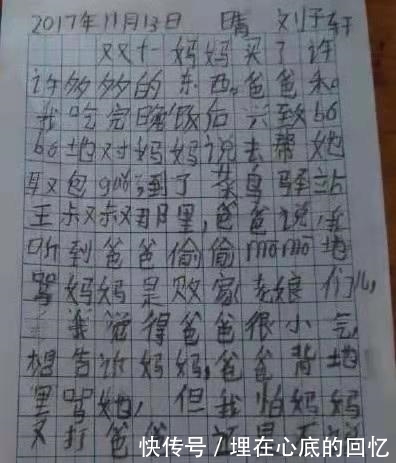 2017年11月13日 晴 刘子轩
双十一妈妈买了许
许多多的东西。爸爸和
我吃完晚饭后兴致bó
bó地对妈妈说去帮她
取包guǒ到了菜鸟驿站
王叔叔那里,爸爸说,
我听到爸爸偷偷momo地
骂妈妈是败家老娘们儿,
我觉得爸爸很小气
想告诉妈妈,爸爸背地
里骂她,但我怕妈妈
又打爸爸
快传号/埋在心底的回忆